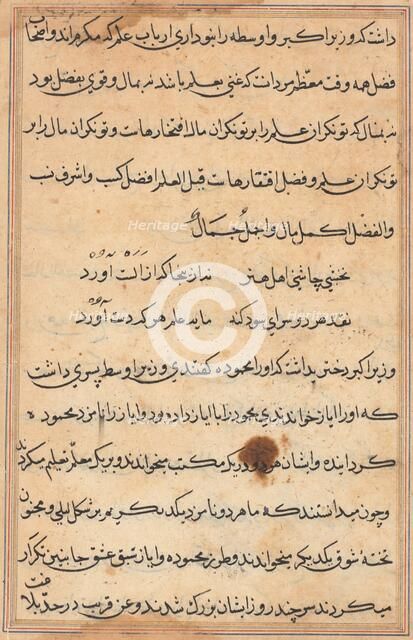 داشت که وزیر اکبر و اوسطه را بنوداری ارباب علم که مکرم اند و اصحاب
فضل همه وقت معظم بر داشت که غنی بعلم باشد نه بمال و قوی بفضل بود
نه بمال که تونکران علم را بر تونکران مال افتخارهاست و تونکران مال را بر
تونکران علم و فضل افتقارهاست قیل العلم افضل کسب و اشرف نسب
والفضل اکمل مال و اجل جمال
نخشبی چاشنی اهل هنر
نقد هر دو سرای سود کند ماند علم هر که دست آورد
وزیر اکبر دختری داشت که او را محموده گفتندی و وزیر اوسط پسری داشت
که او را ایاز خواندندی محموده را با ایاز داده بود و ایاز را نامزد محموده
گردانیده و ایشان هر دو در یک مکتب میخواندند و بر یک معلم تعلیم میکردند
و چون میدانستند که ما هر دو نامزد یکدیگریم بر شکل لیلی و مجنون
تخته شوق یکدیگر میخواندند و طرز محموده و ایاز سبق عشق جانبین تکرار
میکردند سر چند روز ایشان بزرگ شدند و عن قریب در حد بلاغت
Heritage
Heritage
©
Heritage
Heritage